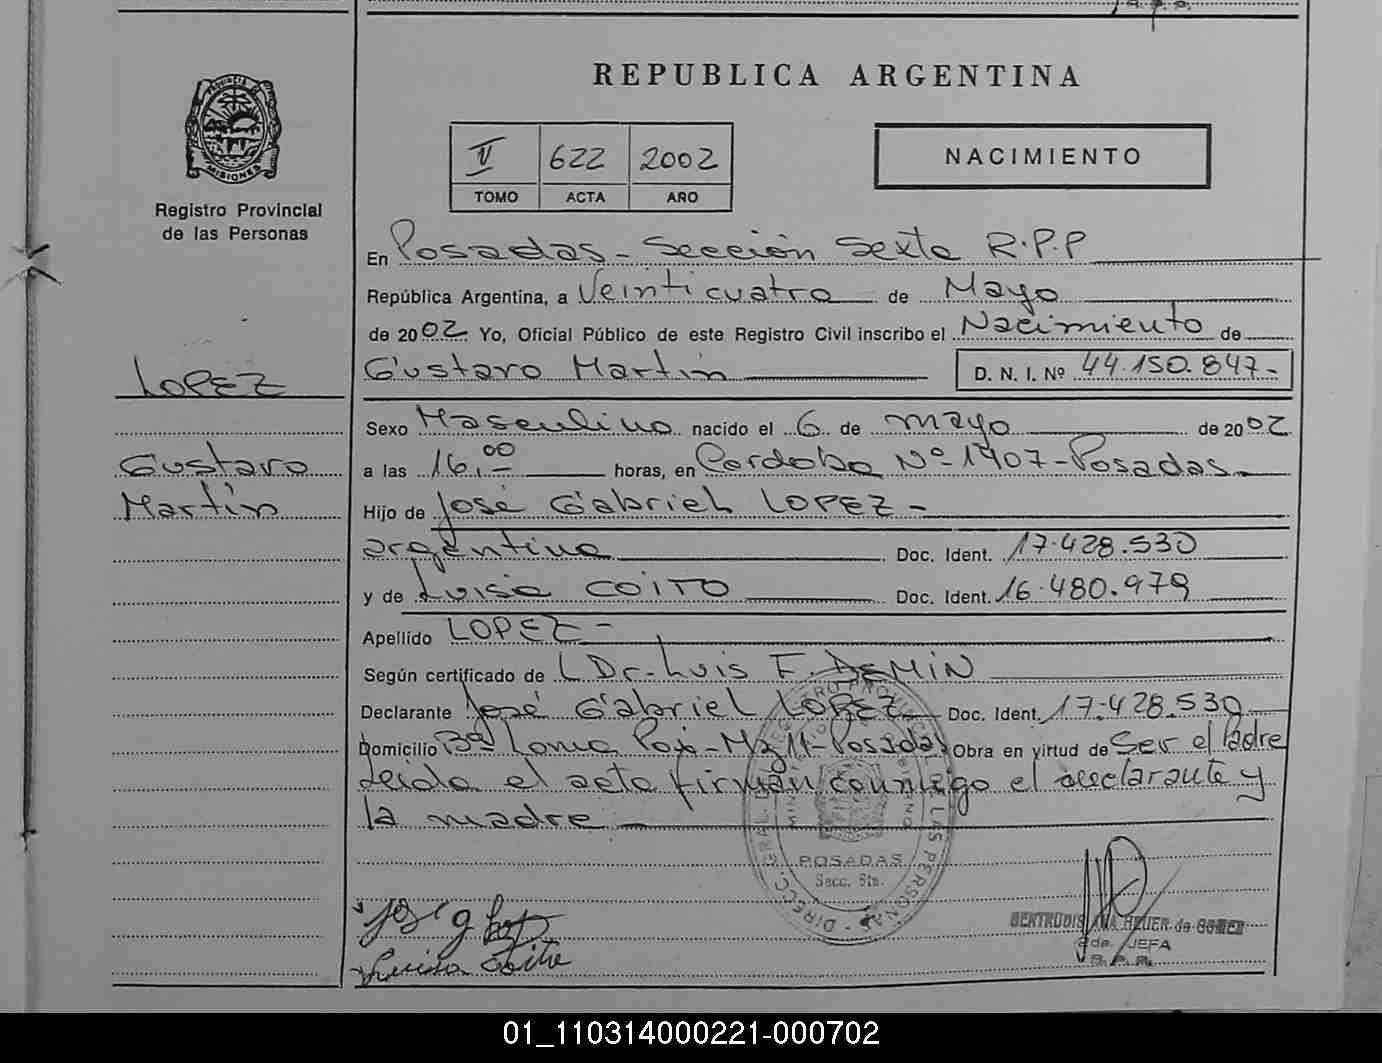 REPUBLICA ARGENTINA
PROVINCIA DE
MISIONES
Registro Provincial
de las Personas
II 622 2002
TOMO ACTA AÑO
NACIMIENTO
En Posadas - Sección Sexta R.P.P
República Argentina, a Veinticuatro de Mayo
de 2002 Yo, Oficial Público de este Registro Civil inscribo el Nacimiento de
Gustavo Martin D. N. I. Nº 44.150.847-
LOPEZ
Gustavo
Martin
Sexo Masculino nacido el 6 de mayo de 2002
a las 16,00 horas, en Cordoba Nº 1907-Posadas-
Hijo de José Gabriel LOPEZ -
argentina Doc. Ident. 17.428.530
y de Luisa COITO Doc. Ident. 16.480.979
Apellido LOPEZ -
Según certificado de Dr. Luis F. DEMIN
Declarante José Gabriel LOPEZ Doc. Ident. 17.428.530
Domicilio Bº Loma Poi - Mz 11-Posadas Obra en virtud de Ser el Padre
Leida el acta firman conmigo el declarante y
la madre
POSADAS
Secc. 6ta.
Luisa Coito
GERTRUDIS ANA HEUER de GOMEZ
JEFA
R. P. P.
01_110314000221-000702